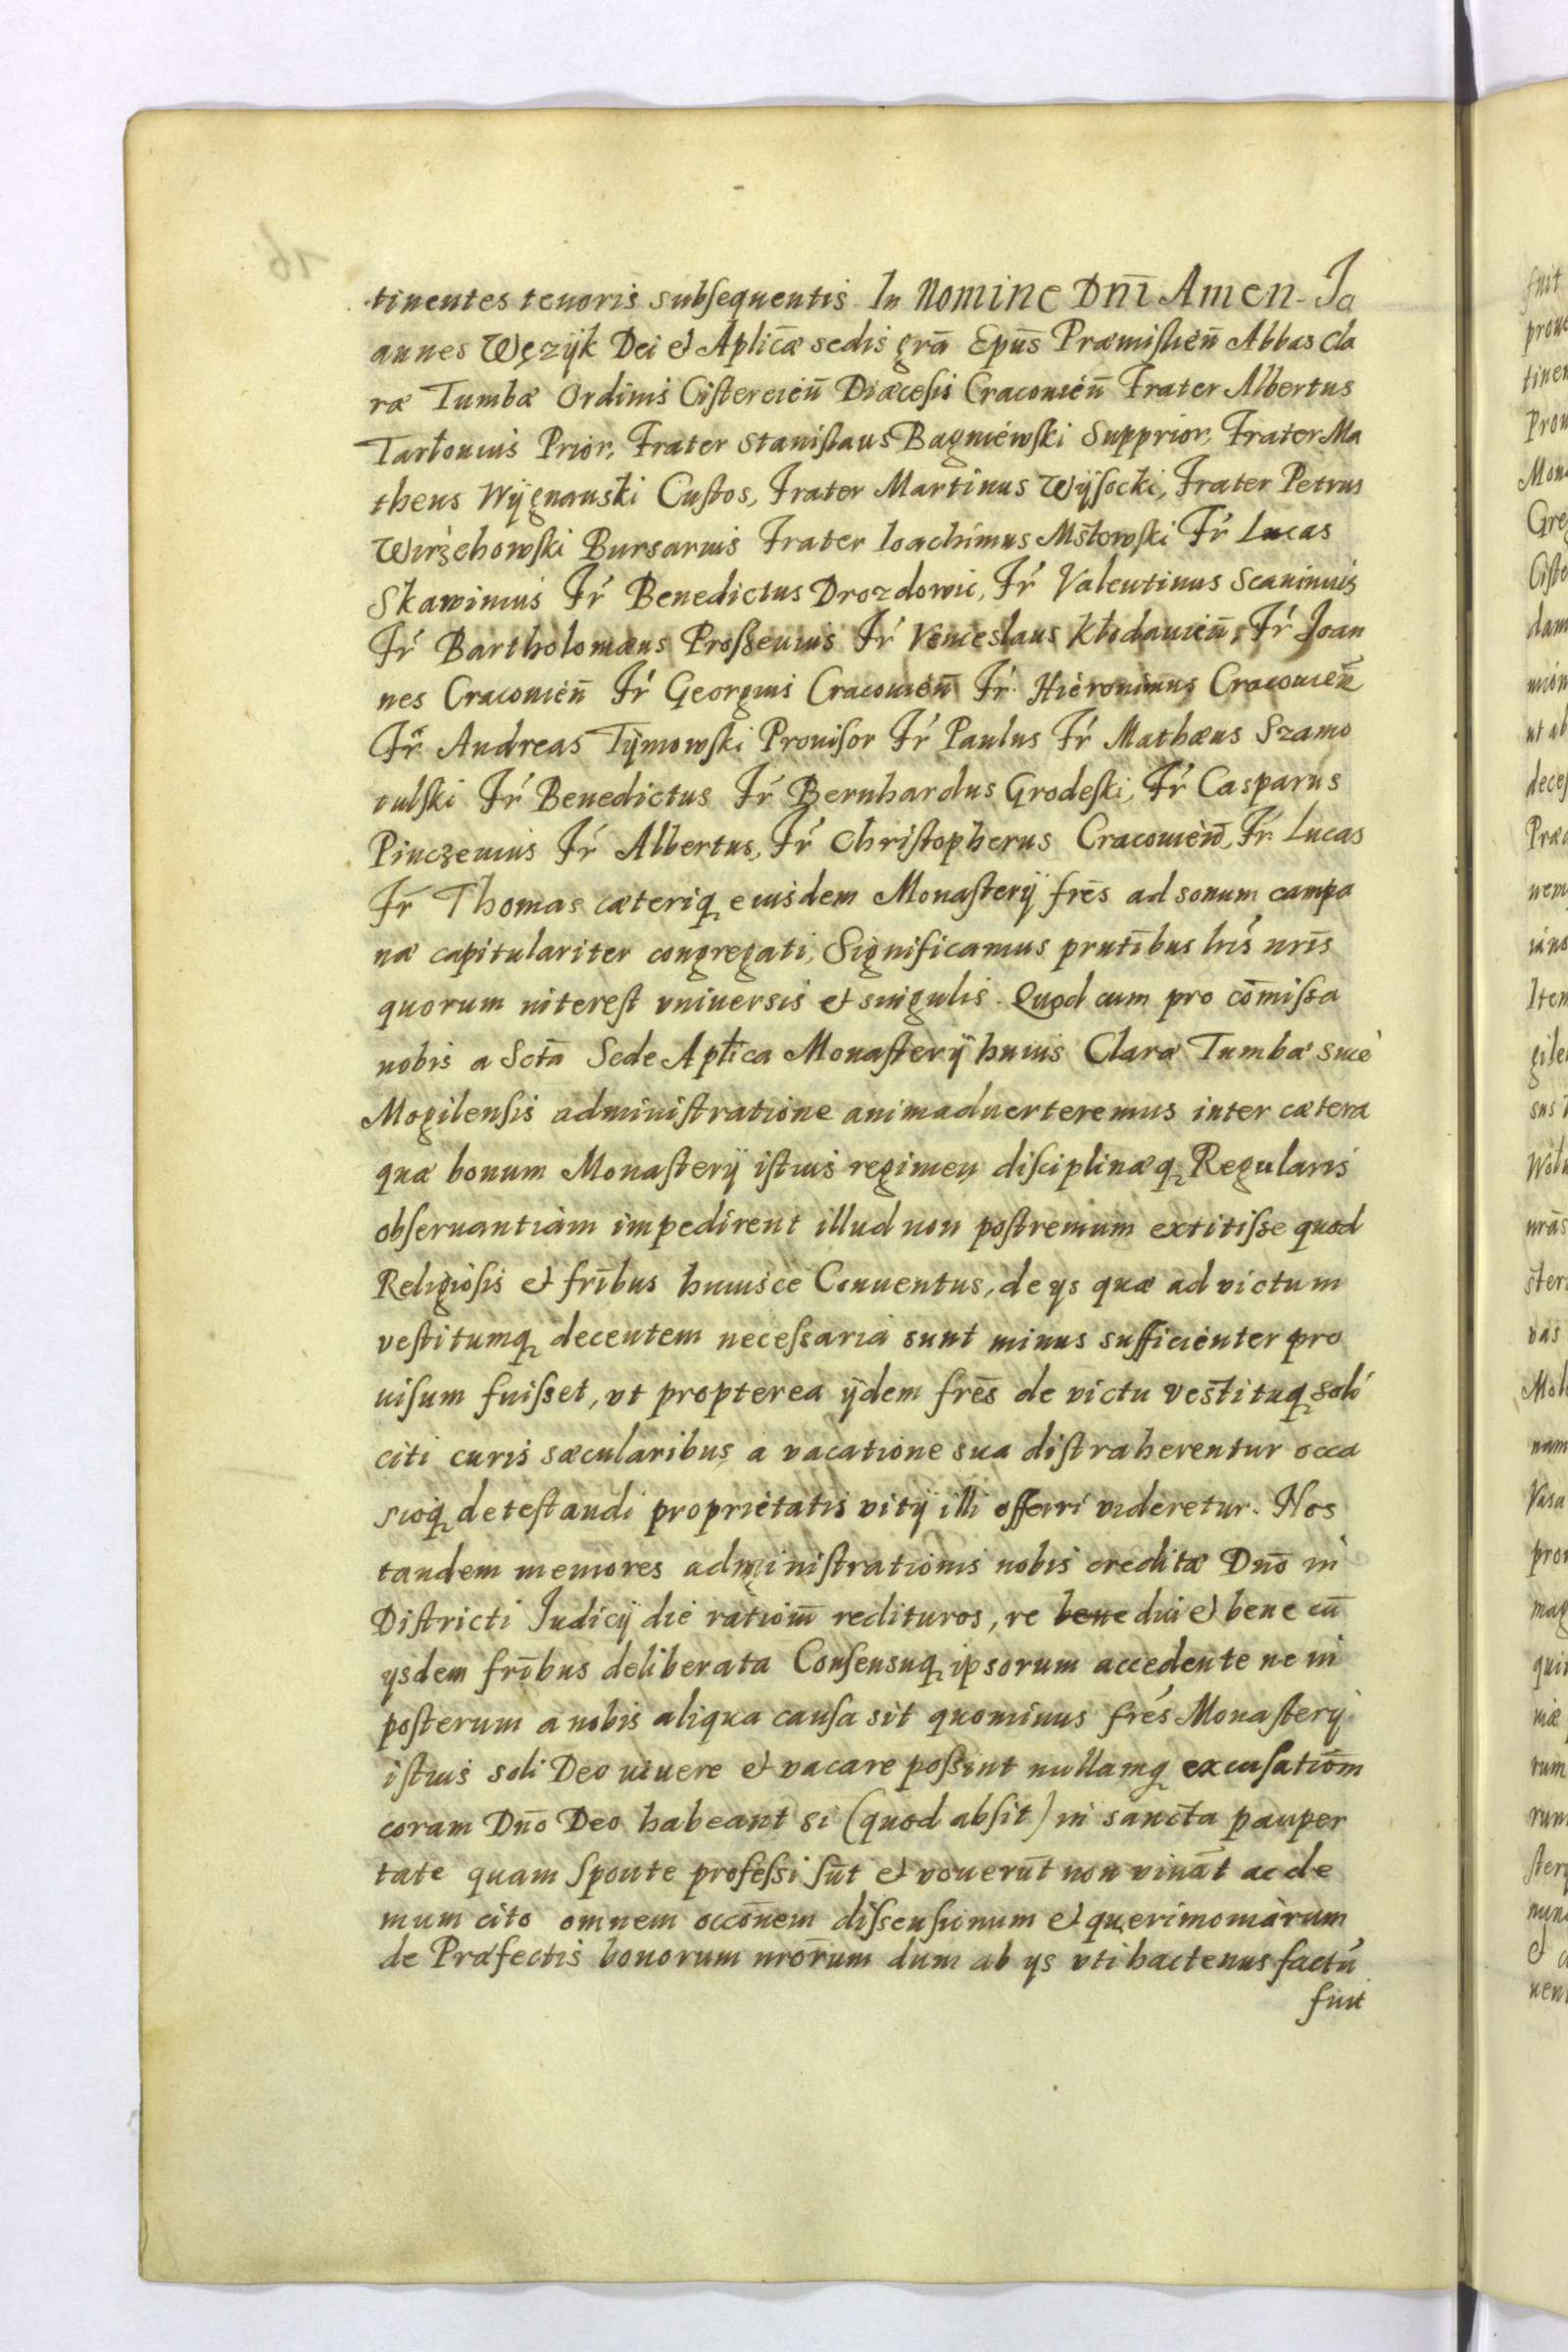 tinentes tenoris subsequentis. In Nomine Dnī Amen. Jo
annes Węzÿk Dei et Aplicæ sedis grā Epūs Præmislień Abbas Cla
ræ Tumbæ Ordinis Cisterciēn Diæcesis Cracouień Frater Albertus
Tarłouius Prior, Frater Stanislaus Bagniewski Supprior, Frater Ma
theus Wÿgnauski Custos, Frater Martinus Wÿsocki, Frater Petrus
Wirzchowski Bursarius Frater Ioachimus Mstowski Fr Lucas
Skawinius Fr Benedictus Drozdowic, Fr Valentinus Scauinius
Fr Bartholomæus Proszeuius Fr Venceslaus Kłodauień, Fr Joan
nes Cracouień Fr Georgius Cracouień Fr Hieronimus Cracouień
Fr Andreas Tÿmowski Prouisor Fr Paulus Fr Mathæus Szamo
tulski Fr Benedictus Fr Bernhardus Grodeski, Fr Casparus
Pinczeuius Fr Albertus, Fr Christopherus Cracouień, Fr Lucas
Fr Thomas cæteriq eiusdem Monasterÿ frēs ad sonum campa
næ capitulariter congregati, Significamus pntibus lris nris
quorum interest vniuersis et singulis. Quod cum pro comissa
nobis a Sctā Sede Aplica Monasterÿ huius Claræ Tumbæ siue
Mogilensis administratione animaduerteremus inter cætera
quæ bonum Monasterÿ istius regimen disciplinæq Regularis
obseruantiam impedirent illud non postremum extitisse quod
Religiosis et frībus huiusce Conuentus, de ÿs quæ ad victum
vestitumq decentem necessaria sunt minus sufficienter pro
uisum fuisset, vt propterea ÿdem frēs de victu vestituq soli
citi curis sæcularibus a vacatione sua distraherentur occa
sioq detestandi proprietatis vitÿ illi offerri videretur. Nos
tandem memores administrationis nobis creditæ Dnō in
Districti Iudicÿ die rationm redituros, re bene diu et bene cū
ÿsdem frībus deliberata Consensuq ipsorum accedente ne in
posterum a nobis aliqua causa sit quominus frēs Monasterÿ
istius soli Deo viuere et vacare possint nullamq excusationm
coram Dnō Deo habeant si (quod absit) in sancta pauper
tate quam sponte professi sūt et vouerūt non viuāt ac de
mum cito omnem occōnem dissensionum et querimoniarum
de Præfectis bonorum nrōrum dum ab ÿs vti hactenus factū
fuit